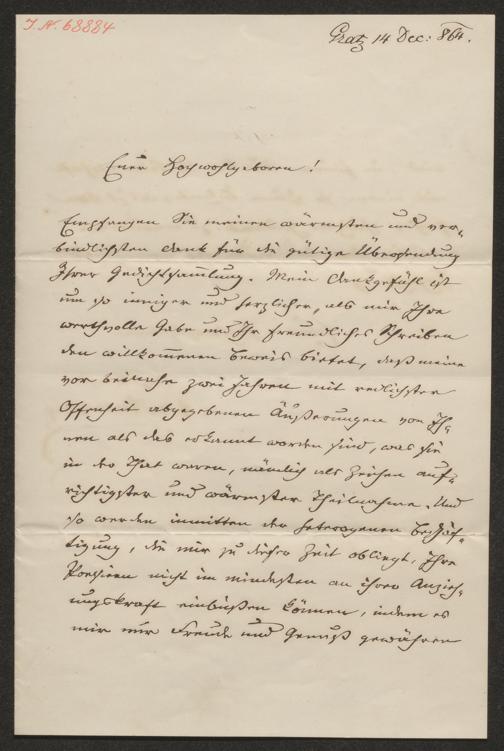 I. N. 68884
Gratz 14 Dec: 864.
Euer Hochwohlgeboren!
Empfangen Sie meinen wärmsten und ver-
bindlichsten Dank für die gütige Übersendung
Ihrer Gedichtsammlung. Mein Dankgefühl ist
um so inniger und herzlicher, als mir Ihre
werthvolle Gabe und Ihr freundliches Schreiben
den willkommenen Beweis bietet, daß meine
vor beinahe zwei Jahren mit redlichster
Offenheit abgegebenen Äußerungen von Ih-
nen als das erkannt worden sind, was sie
in der That waren, nämlich als Zeichen auf-
richtigster und wärmster Theilnahme. Und
so werden inmitten der heterogenen Beschäf-
tigung, die mir zu dieser Zeit obliegt, Ihre
Poesieen nicht im mindesten an ihrer Anzieh-
ungskraft einbüßen können, indem es
mir nur Freude und Genuß gewähren